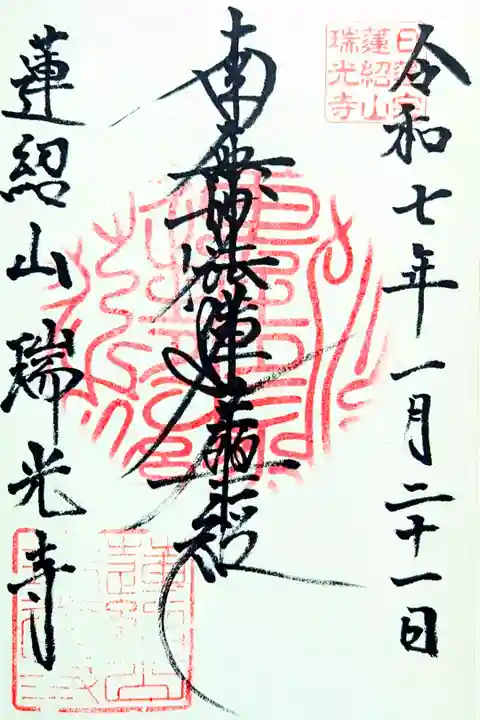 日蓮宗
蓮紹山
瑞光寺
令和七年一月二十一日
南無妙法蓮華経
蓮紹山瑞光寺